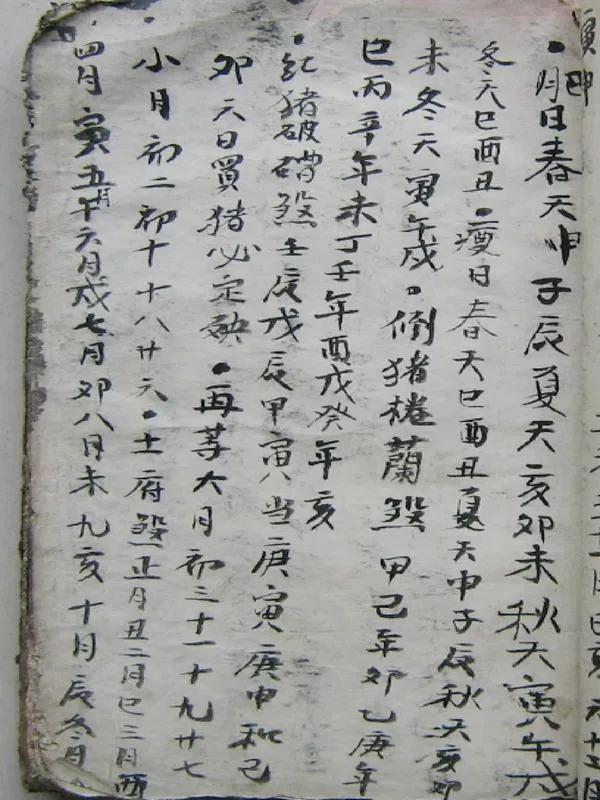 •月日春天申子辰夏天亥卯未秋天寅午戌
冬天巳酉丑•瘦日春天巳酉丑夏天申子辰秋天亥卯
未冬天寅午戌•倒猪棬蘭煞甲己年卯乙庚年
巳丙辛年未丁壬年酉戊癸年亥
•犯猪破碎煞壬辰戊辰甲寅当庚寅庚申和己
卯六日買猪必定缺•再等大月初三十一十九廿七
小月初二初十十八廿六•土府煞正月丑二月巳三月酉
四月寅五月午六月戌七月卯八月未九亥十月辰冬月